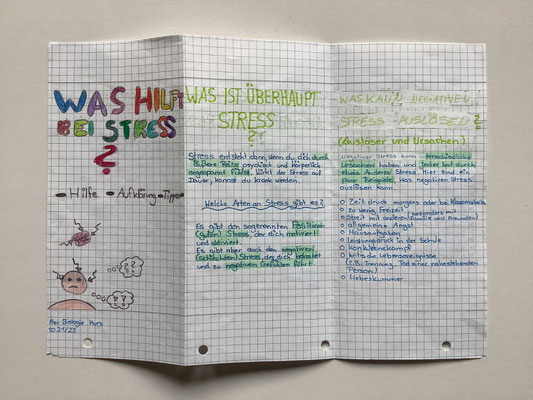 WAS HILFT
BEI STRESS
?
- Hilfe - Aufklärung - Tipps -
? ?
Der Biologie Kurs
2021/22
WAS IST ÜBERHAUPT
STRESS
?
Stress entsteht dann, wenn du dich durch
äußere Reize psychisch und körperlich
angespannt fühlst. Wirkt der Stress auf
Dauer, kannst du krank werden.
Welche Arten an Stress gibt es?
Es gibt den sogenannten Positiven
(guten) Stress, der dich motiviert
und aktiviert.
Es gibt aber auch den negativen
(schlechten) Stress, der dich belastet
und zu negativen Gefühlen führt.
WAS KANN NEGATIVEN
STRESS AUSLÖSEN?
(Auslöser und Ursachen)
Negativer Stress kann verschiedliche
Ursachen haben und jeder hat durch
etwas Anderes Stress. Hier sind ein
paar Beispiele, was negativen Stress
auslösen kann.
o Zeitdruck morgens oder bei Klassenarbeiten
o zu wenig Freizeit
o Streit mit anderen (besonders mit
Familie und Freunden)
o allgemeine Angst
o Hausaufgaben
o Leistungsdruck in der Schule
o Konkurrenzkampf
o kritische Lebensereignisse
(z.B. Trennung, Tod einer nahestehenden
Person)
o Liebeskummer